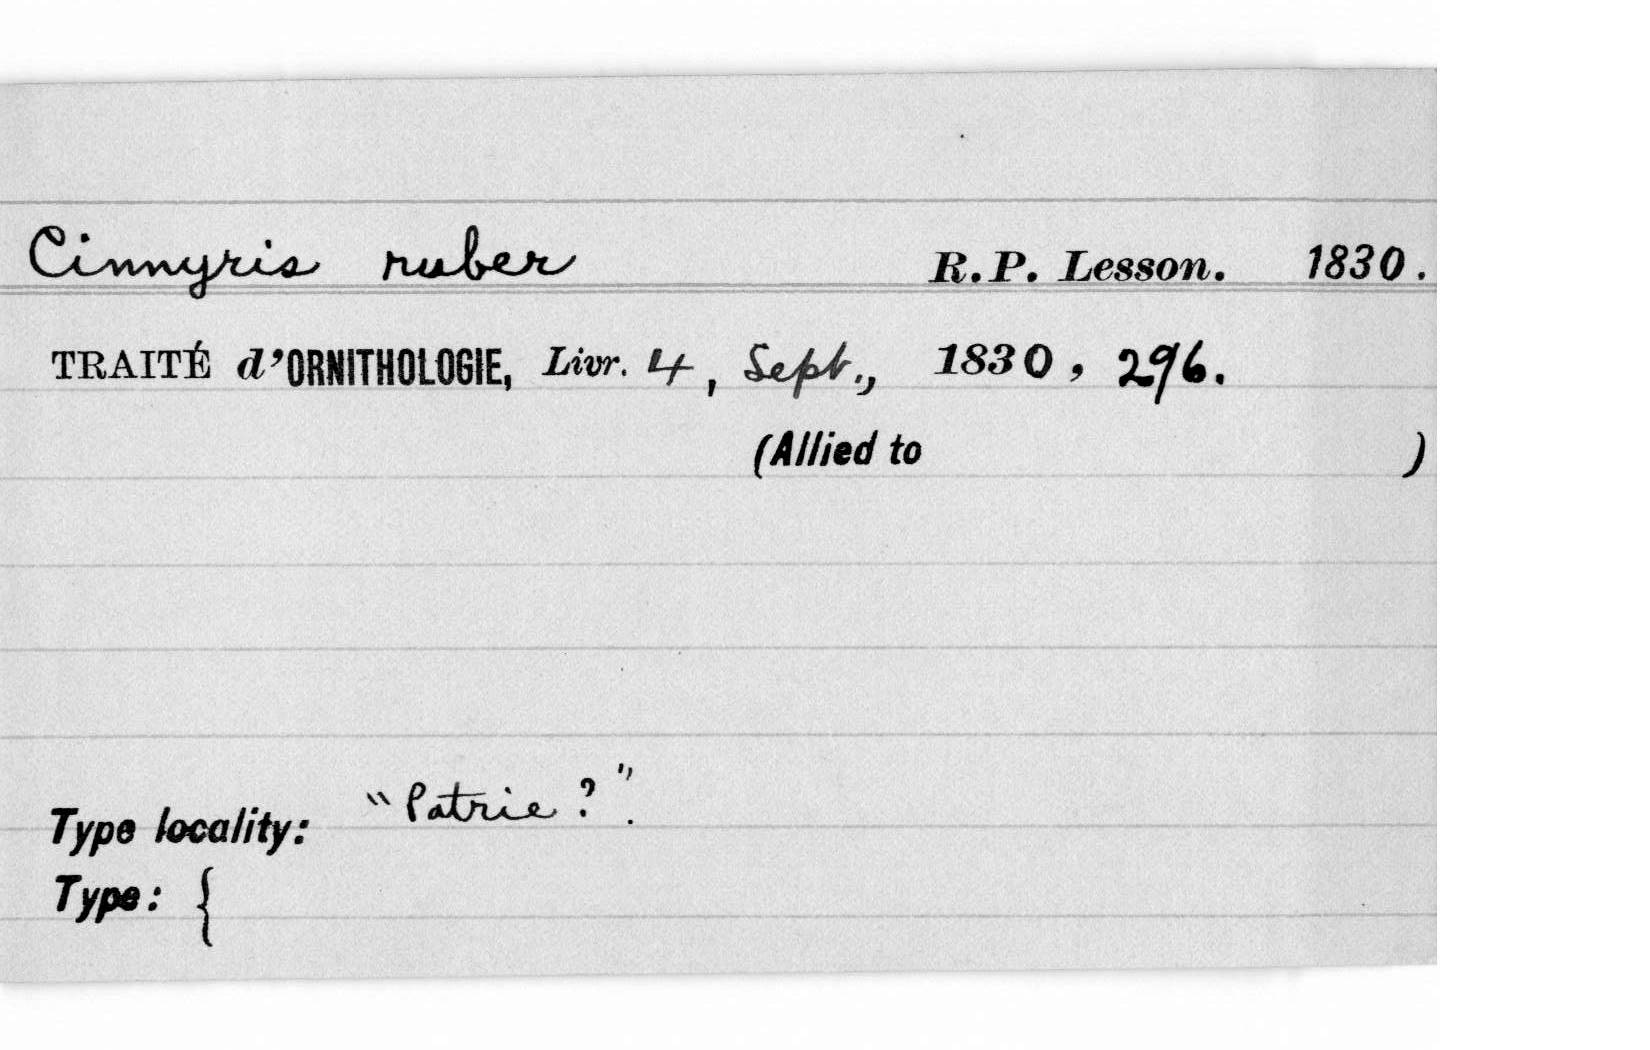 Cinnyris ruber R.P. Lesson. 1830.
TRAITÉ d'ORNITHOLOGIE, Livr. 4, Sept., 1830, 296.
(Allied to )
Type locality: "Patrie?".
Type: {